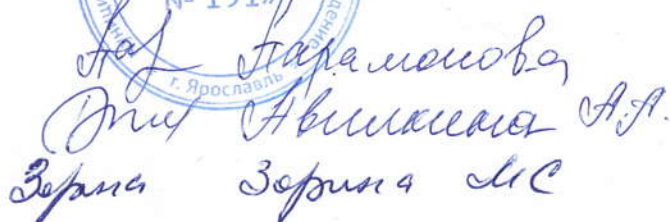 № 191»
г. Ярославль
Парамонова
Авилкина А.А.
Зорина Зорина МС